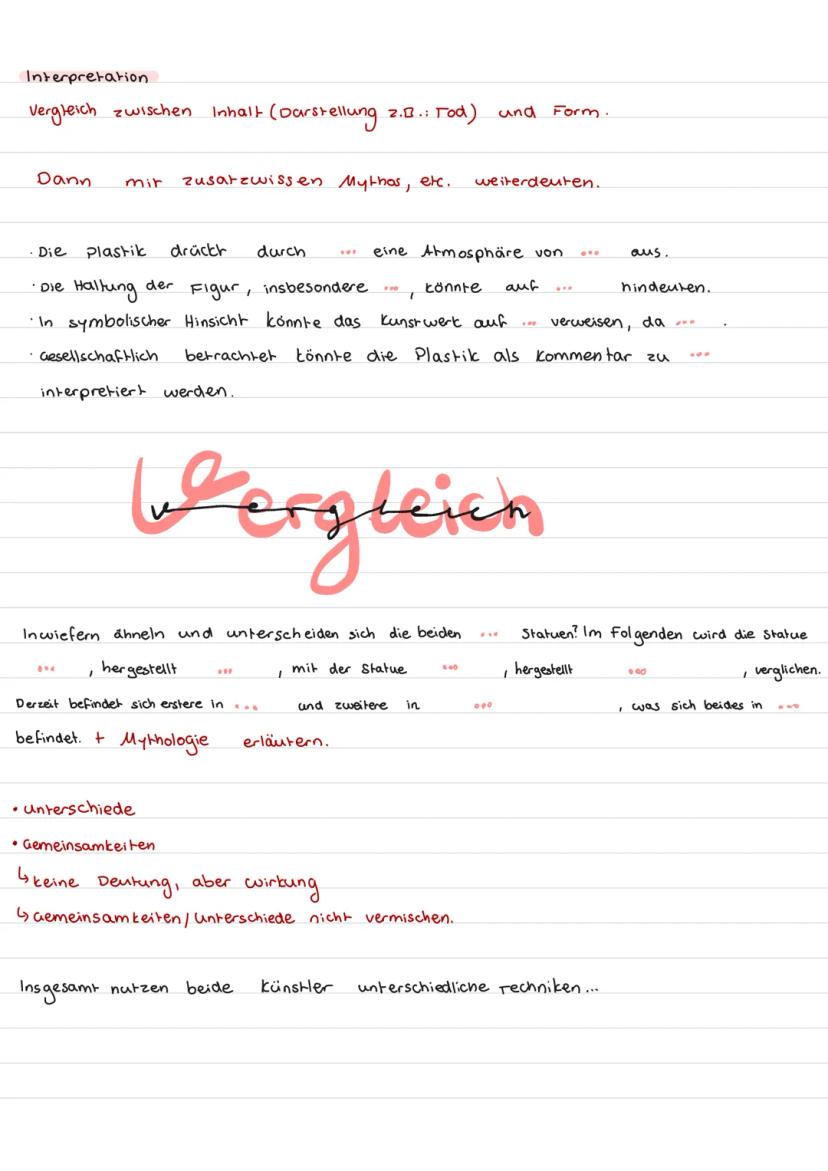 Interpretation
Vergleich zwischen Inhalt (Darstellung z.B.: Tod) und Form.
Dann mit zusatzwissen Mythos, etc. weiterdeuten.
· Die Plastik drückt durch ... eine Atmosphäre von ... aus.
· Die Haltung der Figur, insbesondere ..., könnte auf ... hindeuten.
· In symbolischer Hinsicht könnte das Kunstwerk auf ... verweisen, da ... .
· Gesellschaftlich betrachtet könnte die Plastik als Kommentar zu ...
interpretiert werden.
Vergleich
Inwiefern ähneln und unterscheiden sich die beiden ... Statuen? Im Folgenden wird die Statue
... , hergestellt ... , mit der Statue ... , hergestellt ... , verglichen.
Derzeit befindet sich erstere in ... und zweitere in ... , was sich beides in ...
befindet. + Mythologie erläutern.
• Unterschiede
• Gemeinsamkeiten
↳ keine Deutung, aber wirkung
↳ Gemeinsamkeiten/Unterschiede nicht vermischen.
Insgesamt nutzen beide Künstler unterschiedliche Techniken...